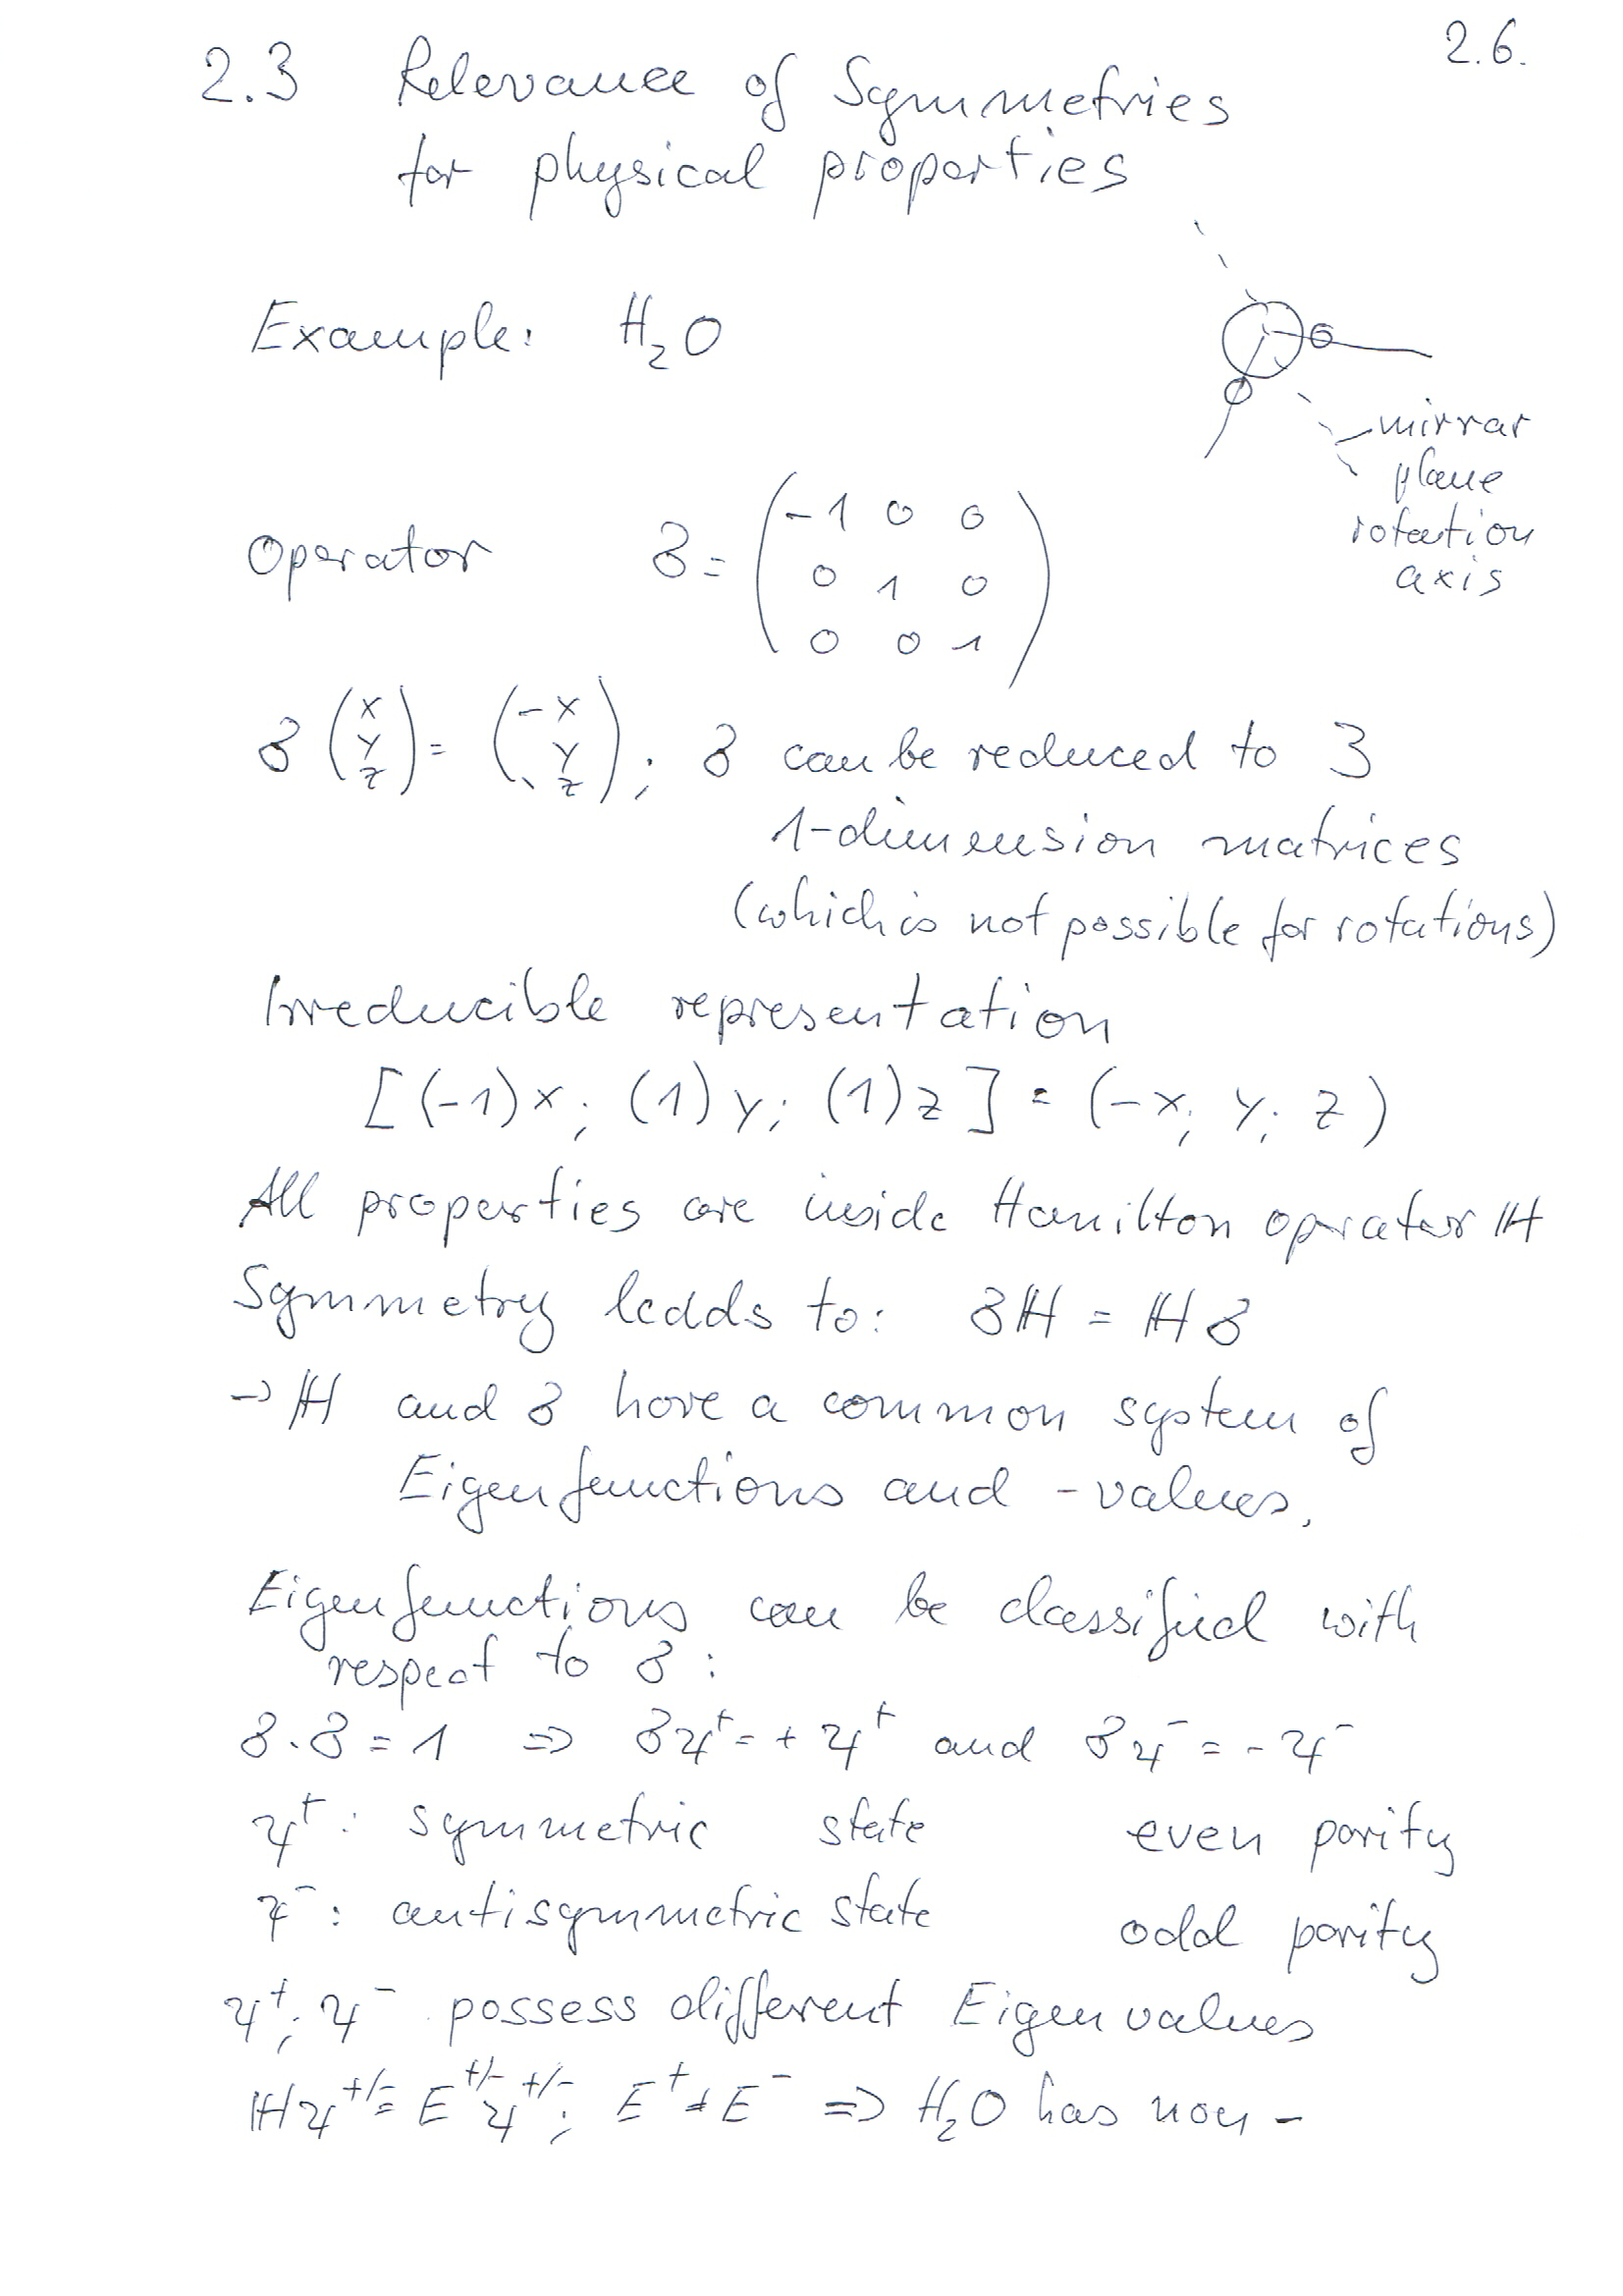 2.6.
2.3 Relevance of Symmetries
for physical properties
Example: H₂O
mirror
plane
rotation
axis
Operator σ = (-1 0 0
0 1 0
0 0 1)
σ (x y z) = (-x y z); σ can be reduced to 3
1-dimension matrices
(which is not possible for rotations)
Irreducible representation
[(-1)x; (1)y; (1)z] = (-x; y; z)
All properties are inside Hamilton operator ℍ
Symmetry leads to: σℍ = ℍσ
→ ℍ and σ have a common system of
Eigenfunctions and -values.
Eigenfunctions can be classified with
respect to σ:
σ·σ = 1 ⇒ σψ⁺ = +ψ⁺ and σψ⁻ = -ψ⁻
ψ⁺: symmetric state even parity
ψ⁻: antisymmetric state odd parity
ψ⁺; ψ⁻ possess different Eigenvalues
ℍψ⁺/⁻ = E⁺/⁻ψ⁺/⁻; E⁺ ≠ E⁻ ⇒ H₂O has non-